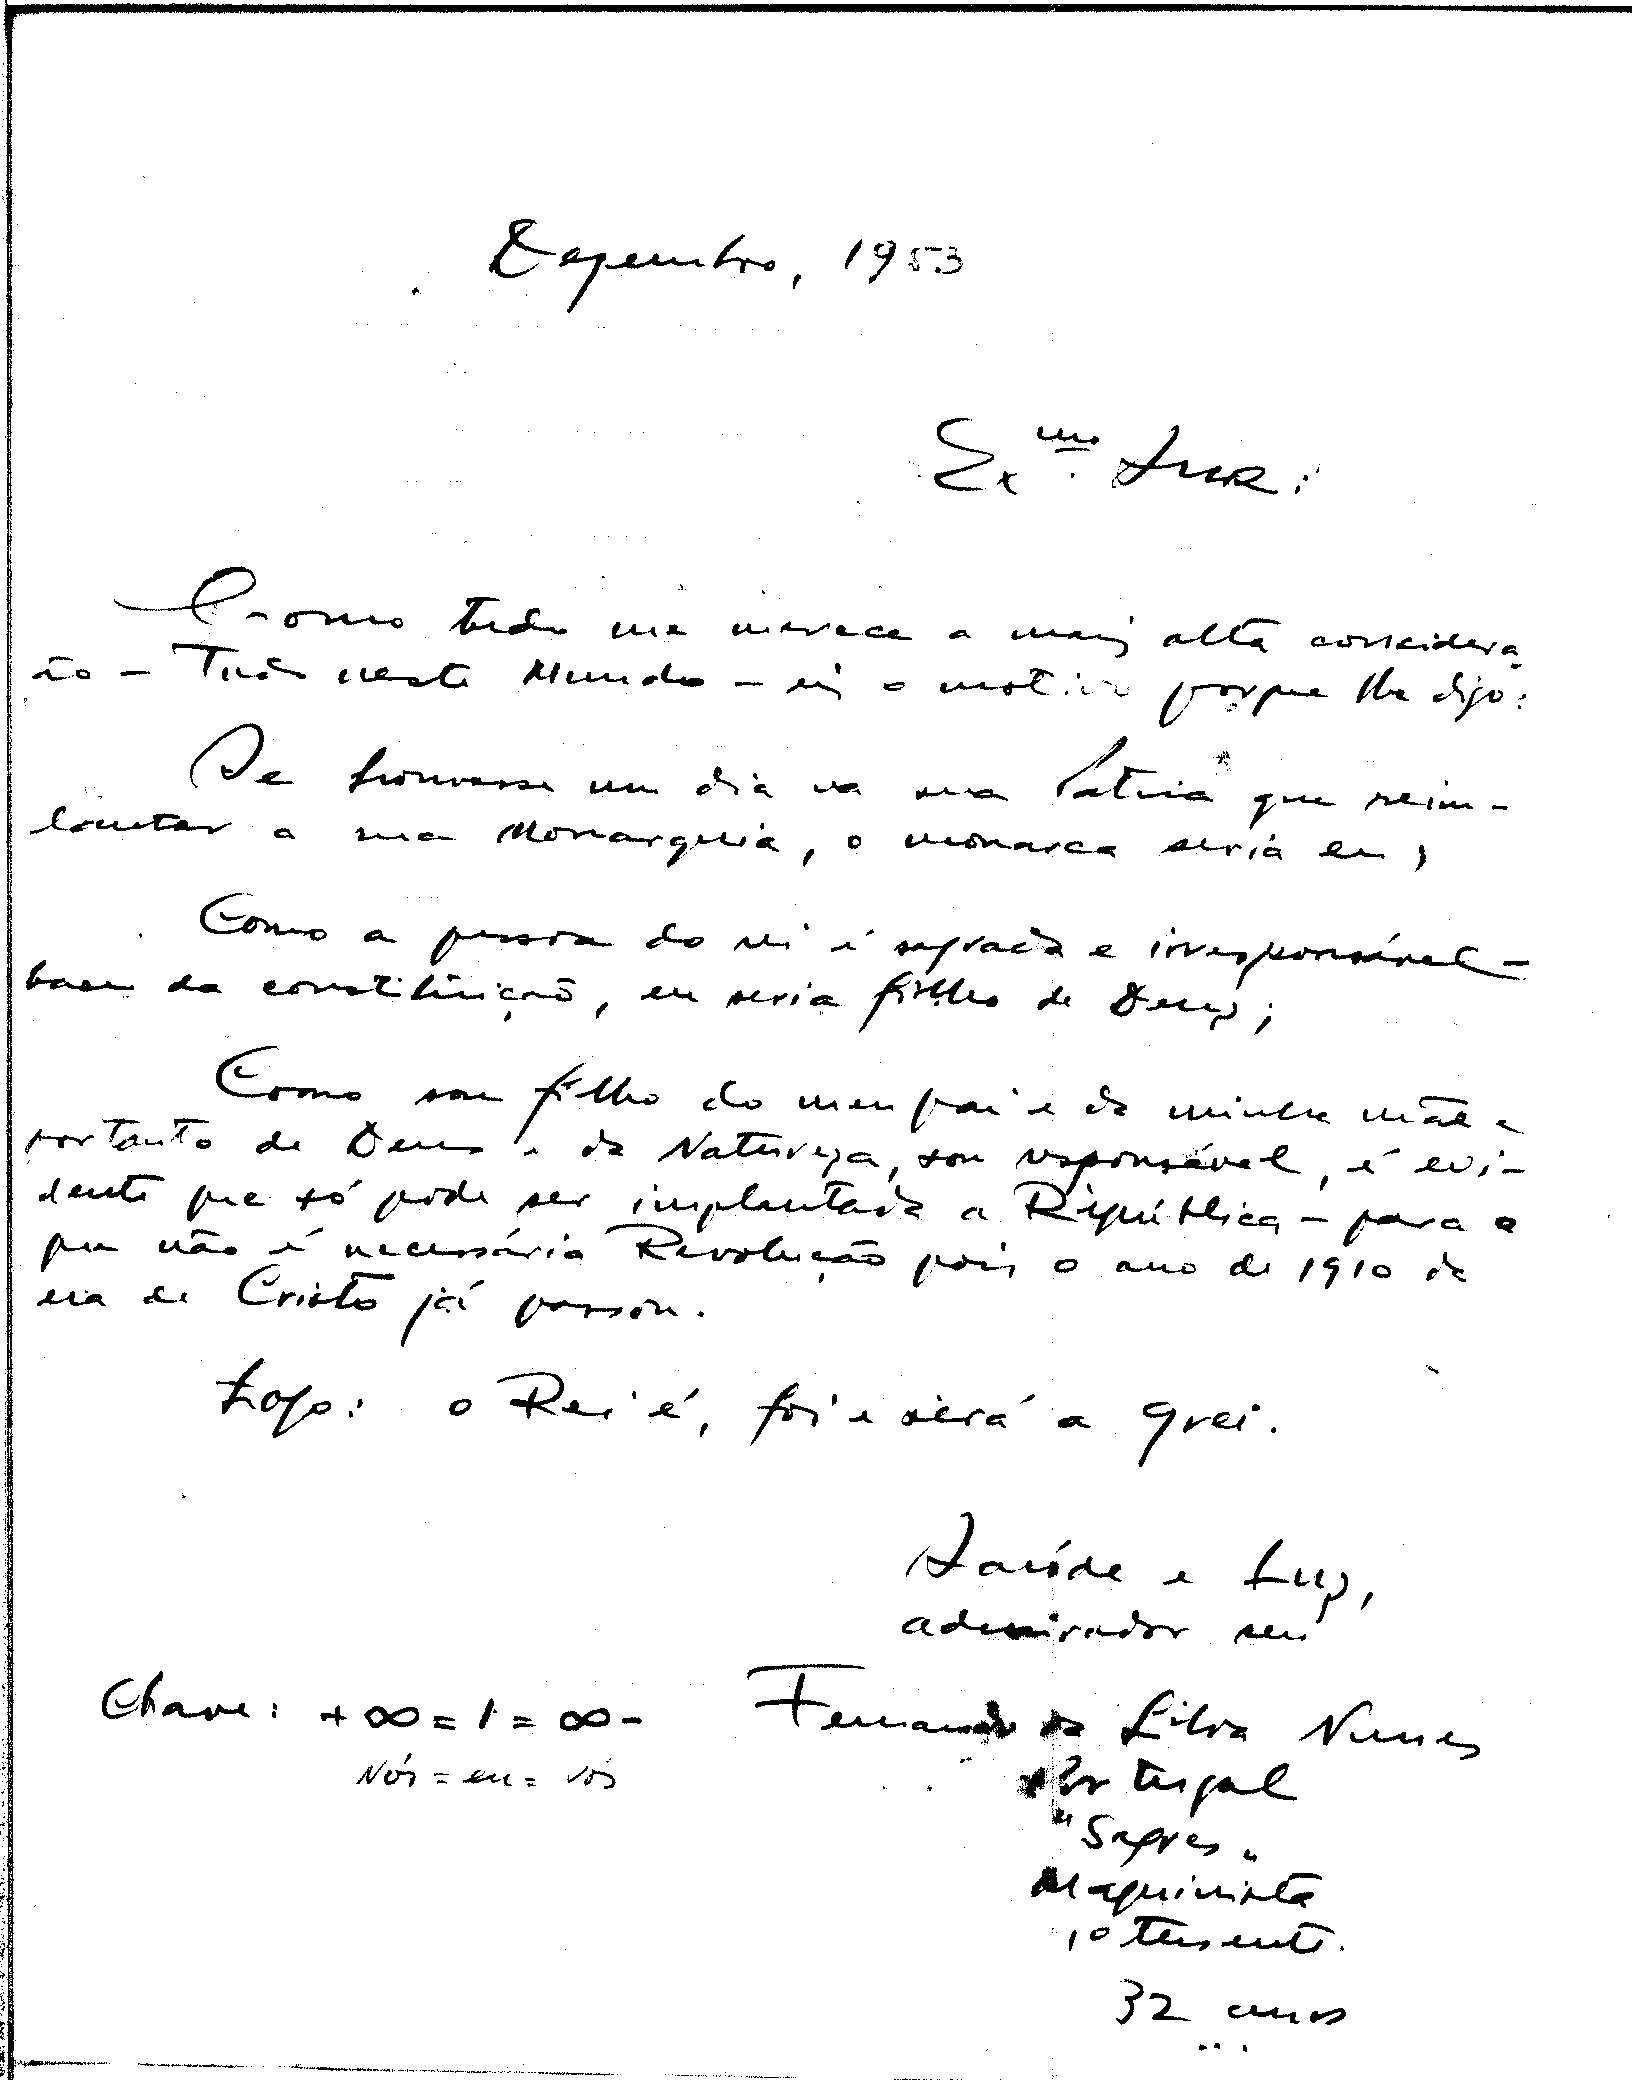 Dezembro, 1953
Exmo. Snr.:
Como tudo me merece a mais alta considera
ão - Tudo neste Mundo - eis o motivo porque lhe digo:
Se houvesse um dia na sua Patria que reim-
lantar a sua Monarquia, o monarca seria eu;
Como a pessoa do rei é sagrada e irresponsável -
base da constituição, eu seria filho de Deus;
Como sou filho do meu pai e da minha mãe e
portanto de Deus e da Natureza, sou responsável, é evi-
dente que só pode ser implantada a República - para o
que não é necessária Revolução pois o ano de 1910 da
era de Cristo já passou.
Logo: o Rei é, foi e será a grei.
Saúde e Luz,
admirador seu
Chave: + ∞ = 1 = ∞ -
Nós = eu = vós
Fernando da Silva Nunes
Portugal
"Sagres"
Maquinista
1º tenente.
32 anos